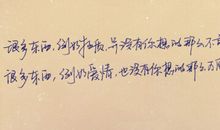 很多东西,例如物质,并没有你想的那么不
很多东西,例如爱情,也没有你想的那么万